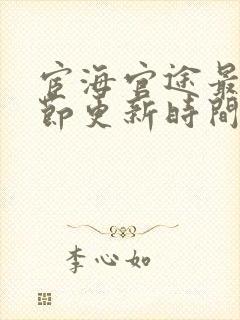 宦海官途最
節更新時間
李心如